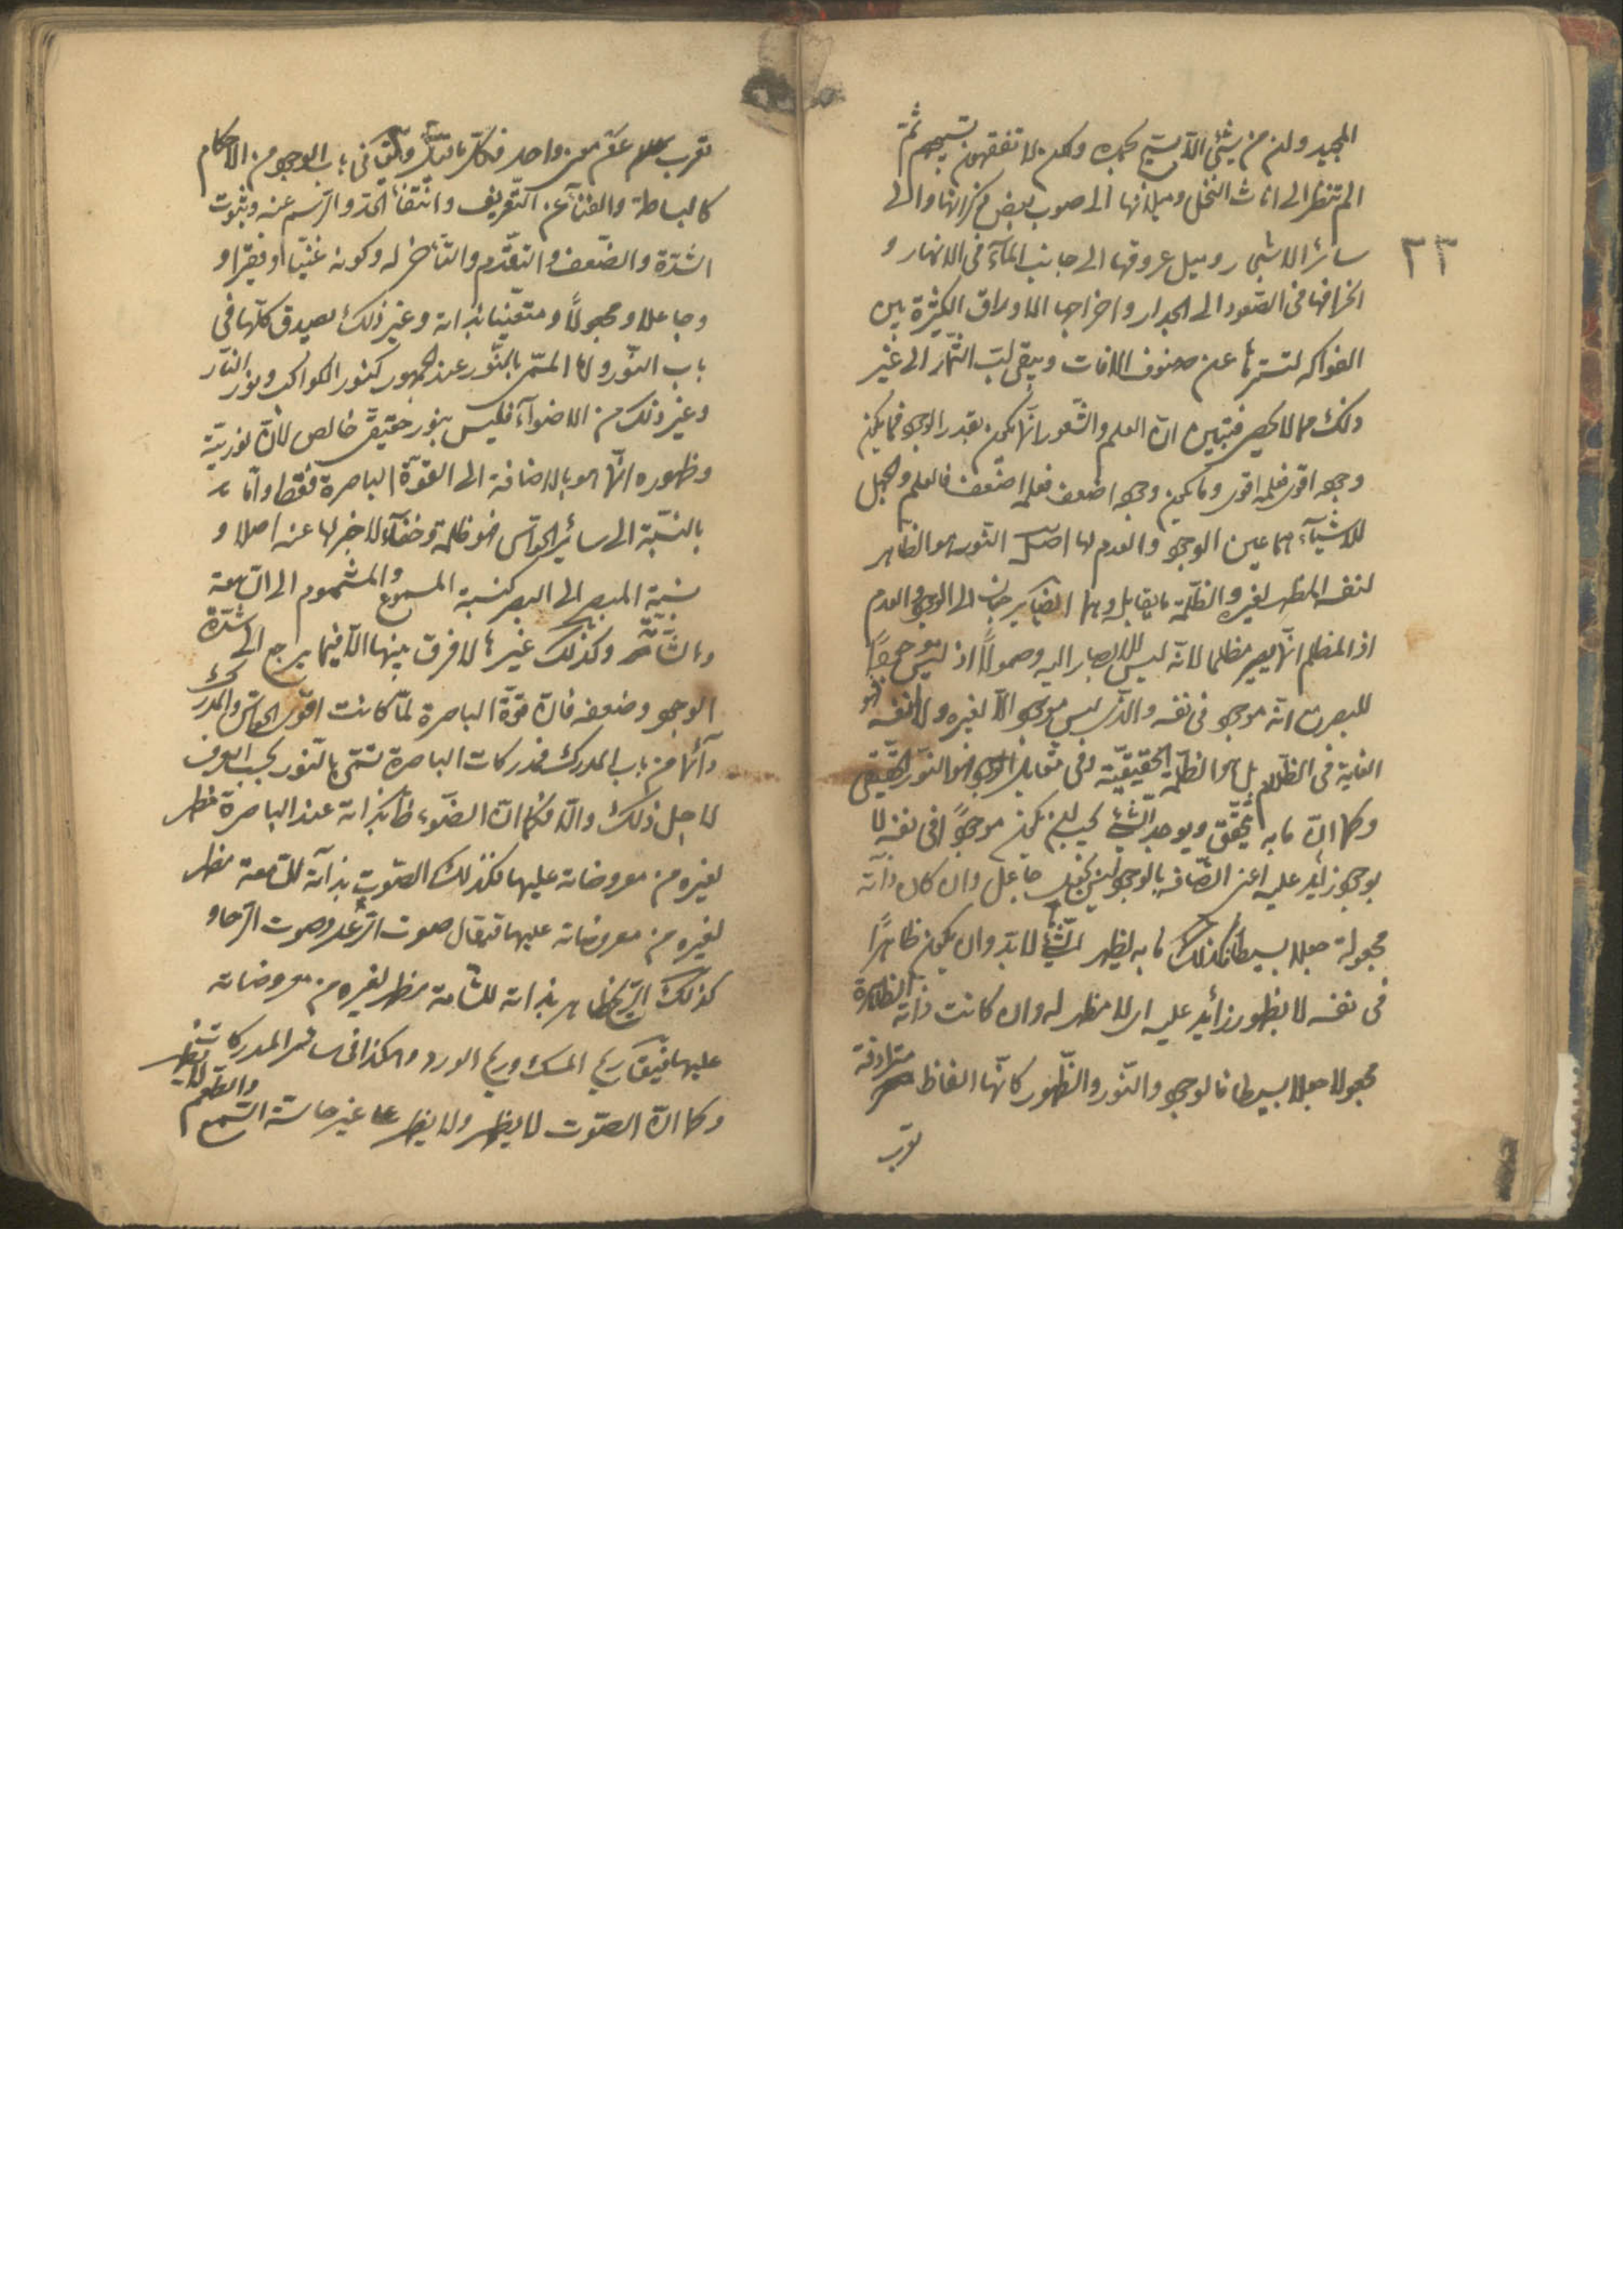 المجيد وان من شئ الا يسبح بحمده ولكن لا تفقهون تسبيحهم ثم
الم تنظر الى اناث النخل وميلانها الى صوب بعض ذكرانها والى
سائر الاشجار وميل عروقها الى جانب الماء فى الانهار و
٣٣
انحرافها فى الصعود الى الجدار واخراجها الاوراق الكثيرة بين
الفواكه لتسترها عن صنوف الافات ويبقى لبّ الثمار الى غير
ذلك مما لا يحصى فتبين ان العلم والشعور انما يكون بقدر الوجود فما يكون
وجوده اقوى فعلمه اقوى وما يكون وجوده اضعف فعلمه اضعف فالعلم والجهل
للاشياء هما عين الوجود والعدم لها اصل النور هو الظاهر
لنفسه المظهر لغيره والظلمة ما يقابله وهما ايضا يرجعان الى الوجود والعدم
اذ المظلم انما يصير مظلما لانه ليس للابصار اليه وصولا اذ ليس موجودا
للبصر مع انه موجود فى نفسه والذى ليس موجودا لا لغيره ولا لنفسه فهو
الغاية فى الظلام بل هو الظلمة الحقيقية وفى مقابله الوجود هو النور الحقيقى
وكما ان ما به يتحقق ويوجد الشئ يجب ان يكون موجودا فى نفسه لا
بوجود زائد عليه اعنى اتصافه بالوجود ليس بجعل جاعل وان كان ذاته
مجعولة جعلا بسيطا فكذلك ما به يظهر الشئ لابد وان يكون ظاهرًا
فى نفسه لا بظهور زائد عليه اى لا مظهر له وان كانت ذاته الظاهرة
مجعولا جعلا بسيطا فالوجود والنور والظهور كانها الفاظ مترادفة
تعرب
تعرب عن معنى واحد فكل ما فى باب الوجود من الاحكام
كالبساطة والغناء عن التعريف وانتفاء الحد والرسم عنه وثبوت
الشدة والضعف والتقدم والتاخر له وكونه غنيّا او فقيرا و
وجاعلا ومجعولا ومتعينا بذاته وغير ذلك يصدق كلها فى
باب النور واما المسمى بالنور عند الجمهور كنور الكواكب ونور النار
وغير ذلك من الاضواء فليس بنور حقيقى خالص لان نوريته
وظهوره انما هو بالاضافة الى القوة الباصرة فقط واما
بالنسبة الى سائر الحواس فهو ظلمة وخفاء لا خبر لها عنه اصلا و
نسبة المبصر الى البصر كنسبة المسموع والمشموم الى السامعة
والشامة وكذلك غيرها لا فرق بينها الا فيما يرجع الى شدة
الوجود وضعفه فان قوة الباصرة لما كانت اقوى الحواس والمدرك
دائما من باب المدرك فمدركات الباصرة تسمى بالنور بحسب العرف
لاجل ذلك والا فكما ان الضوء ظاهر بذاته عند الباصرة مظهر
لغيره من معروضاته عليها فكذلك الصوت بذاته للسامعة مظهر
لغيره من معروضاته عليها فيقال صوت الرعد وصوت الرحا و
كذلك الريح ظاهر بذاته للشامة مظهر لغيره من معروضاته
عليها فيقال ريح المسك وريح الورد وهكذا فى سائر المدركات
وكما ان الصوت لا يظهر ولا يظهر على غير حاسة السمع والطعم لا يظهر